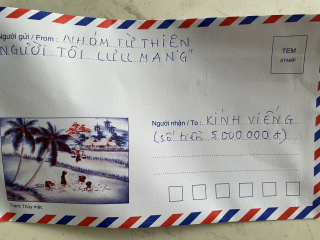 Người gửi / From : NHÓM TỪ THIỆN
NGƯỜI TÔI LƯU MANG"
TEM
STAMP
Người nhận / To : KÍNH VIẾNG
(số tiền 5.000.000 đ)
Tranh Thủy mặc